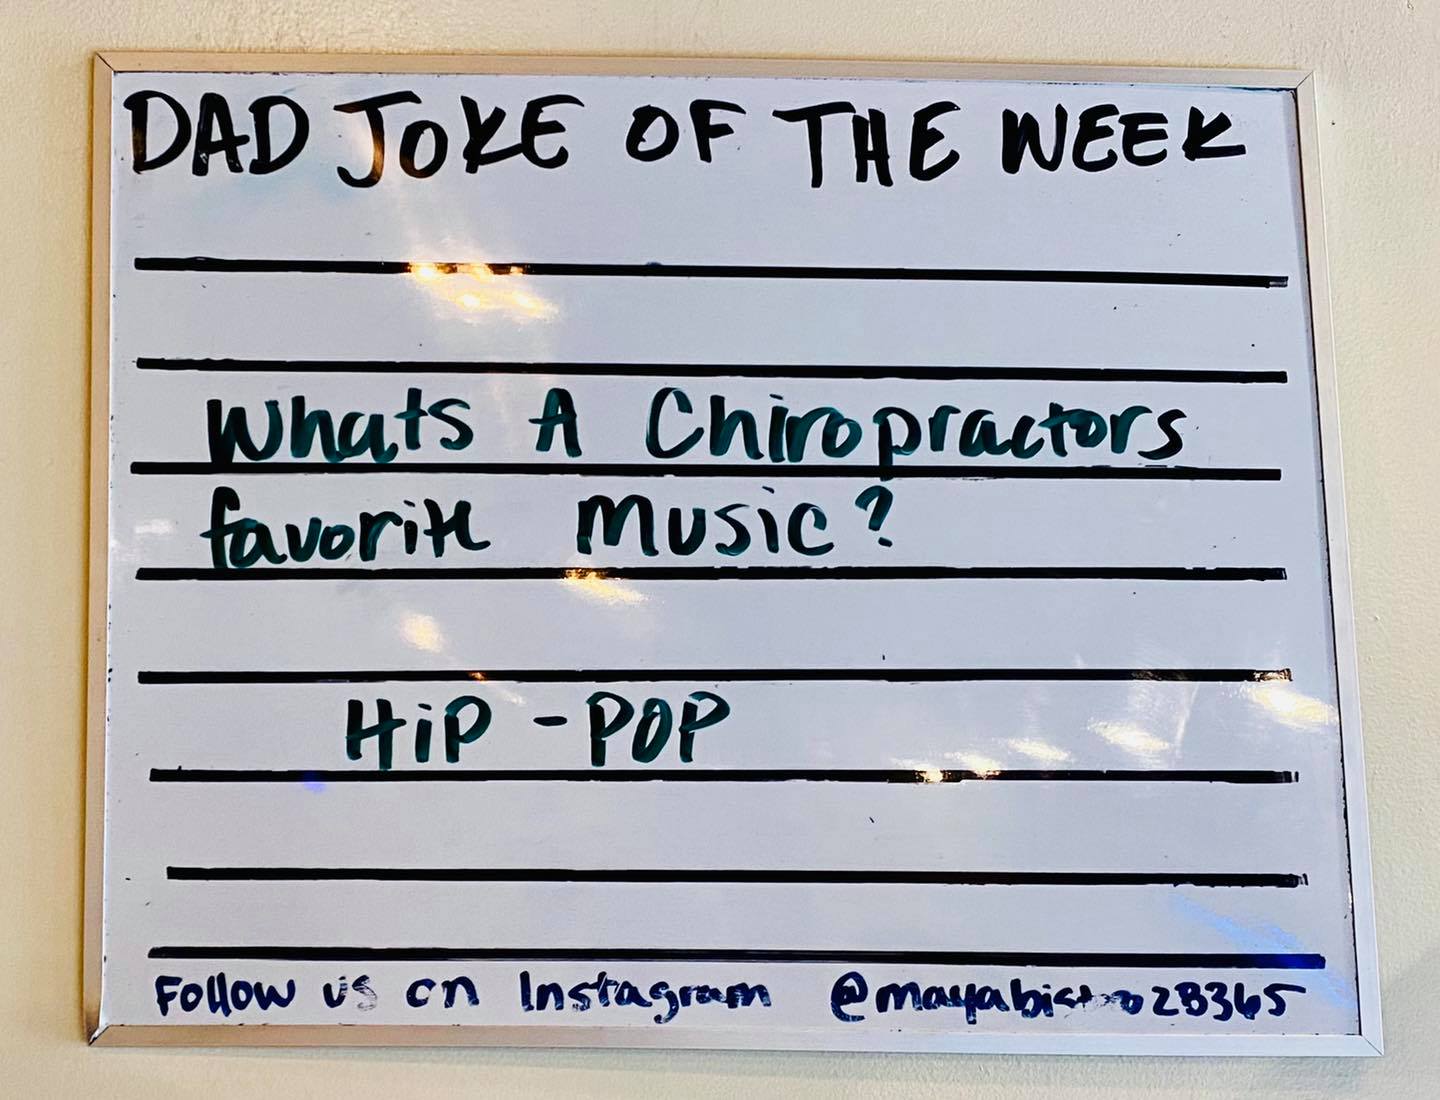 DAD JOKE OF THE WEEK
Whats A Chiropractors
favorite Music?
HiP - POP
Follow us on Instagram @mayabistro28365